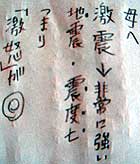 母へ
激震→非常に強い
地震・震度七
つまり
「激怒が